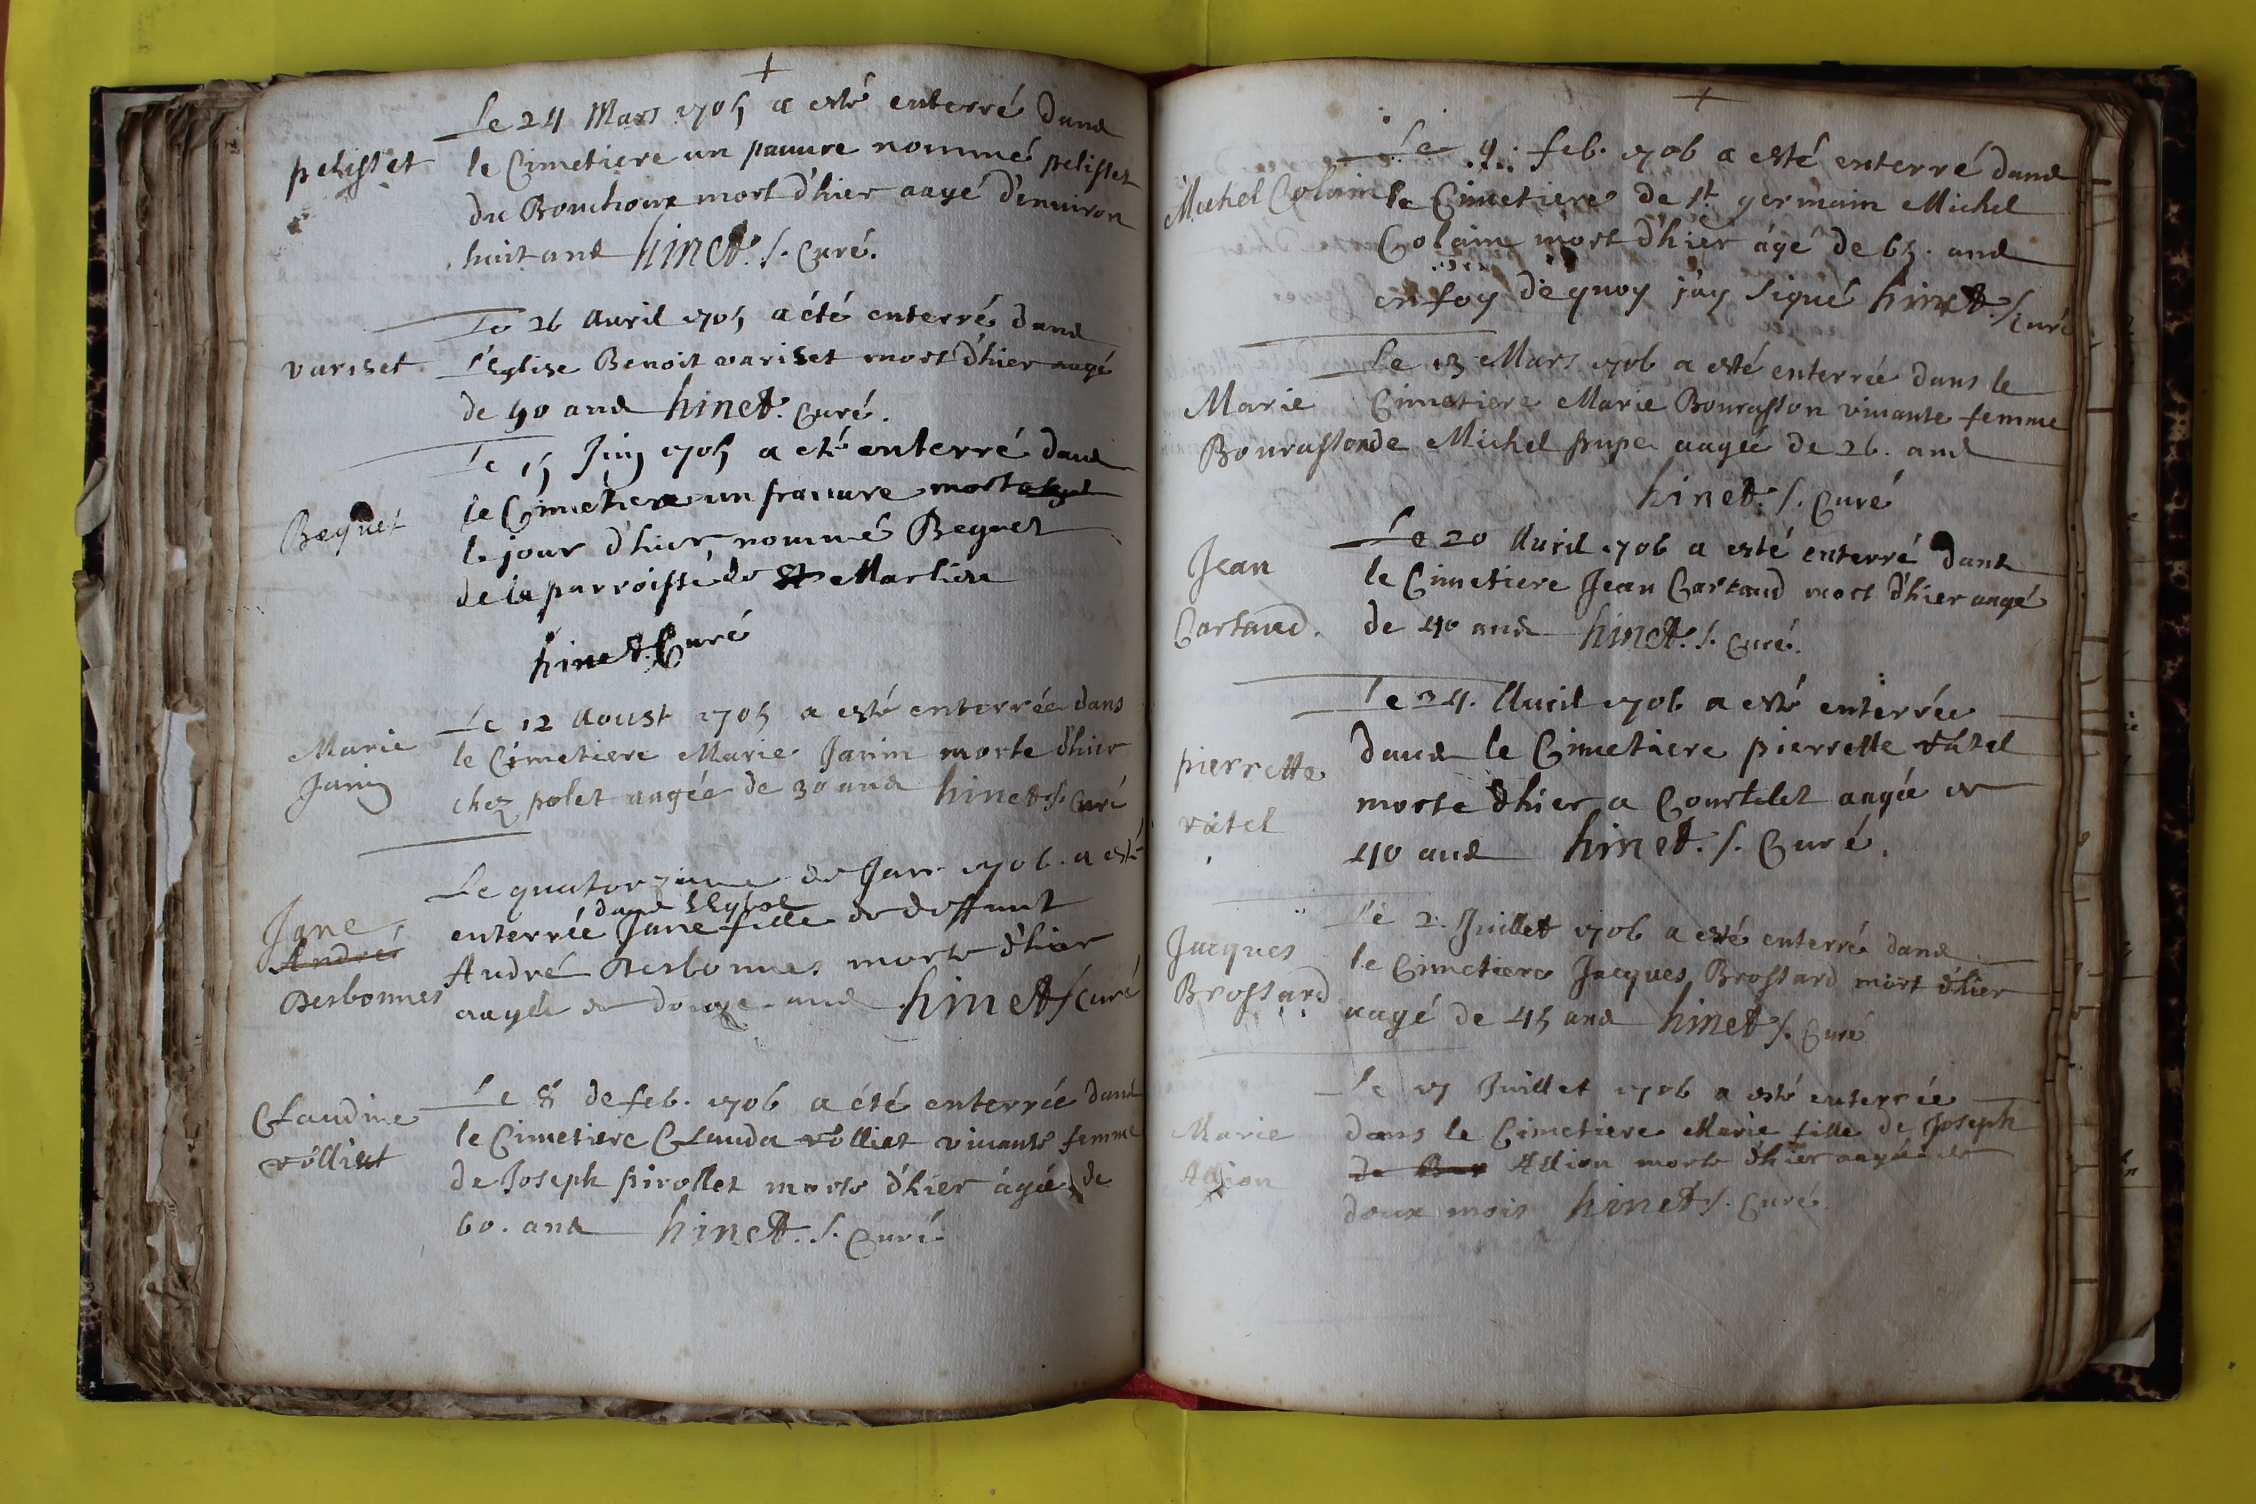 +
Le 24 Mars 1705 a esté enterré dans
pelisset
le Cimetiere un pauure nommé pelisset
du Bouchoux mort d'hier aagé d'enuiron
huit ans hinet. s. Curé.
Le 26 Auril 1705 a été enterré dans
variset
l'Eglise Benoit variset mort d'hier aagé
de 40 ans hinet. Curé.
Le 15 Juin 1705 a eté enterré dans
le Cimetiere un pauure mort
Bequet
le jour d'hier, nommé Bequet
de la parroisse de St Martin
hinet. Curé
Le 12 Aoust 1705 a esté enterrée dans
Marie
le Cimetiere Marie Janin morte d'hier
Janin
chez polet aagée de 30 ans hinet s. Curé
Le quatorzieme de Janr 1706. a esté
dans l'Eglise
Jane
enterrée Jane fille de deffunt
André
André Desbonnes morte d'hier
Desbonnes
aagée de douze ans hinet s Curé
Le 8 de feb. 1706 a été enterrée dans
Claudine
le Cimetiere Clauda rolliet viuante femme
rolliet
de Joseph pirollet morte d'hier agée de
60. ans hinet. s. Curé.
+
Le 9. feb. 1706 a esté enterré dans
Michel Colain
le Cimetiere de st germain Michel
Colain mort d'hier agé de 65. ans
en foy de quoy j'ay signé hinet. s. curé
Le 13 Mars 1706 a esté enterrée dans le
Marie
Cimetiere Marie Bourasson viuante femme
Bourasson
de Michel pupe aagée de 26. ans
hinet. s. Curé
Le 20 Auril 1706 a esté enterré dans
Jean
le Cimetiere Jean Cartaud mort d'hier aagé
Cartaud.
de 40 ans hinet. s. curé.
Le 24. Auril 1706 a esté enterrée
dans le Cimetiere pierrette ratel
pierrette
morte d'hier a Courtelet aagée de
ratel
40 ans hinet. s. Curé.
Le 2. Juillet 1706 a esté enterré dans
Jacques
le Cimetiere Jacques Brossard mort d'hier
Brossard
aagé de 45 ans hinet s. Curé
Le 17 Juillet 1706 a esté enterrée
Marie
dans le Cimetiere Marie fille de Joseph
Allion
de Allion morte d'hier aagée de
doux mois hinet s. Curé.